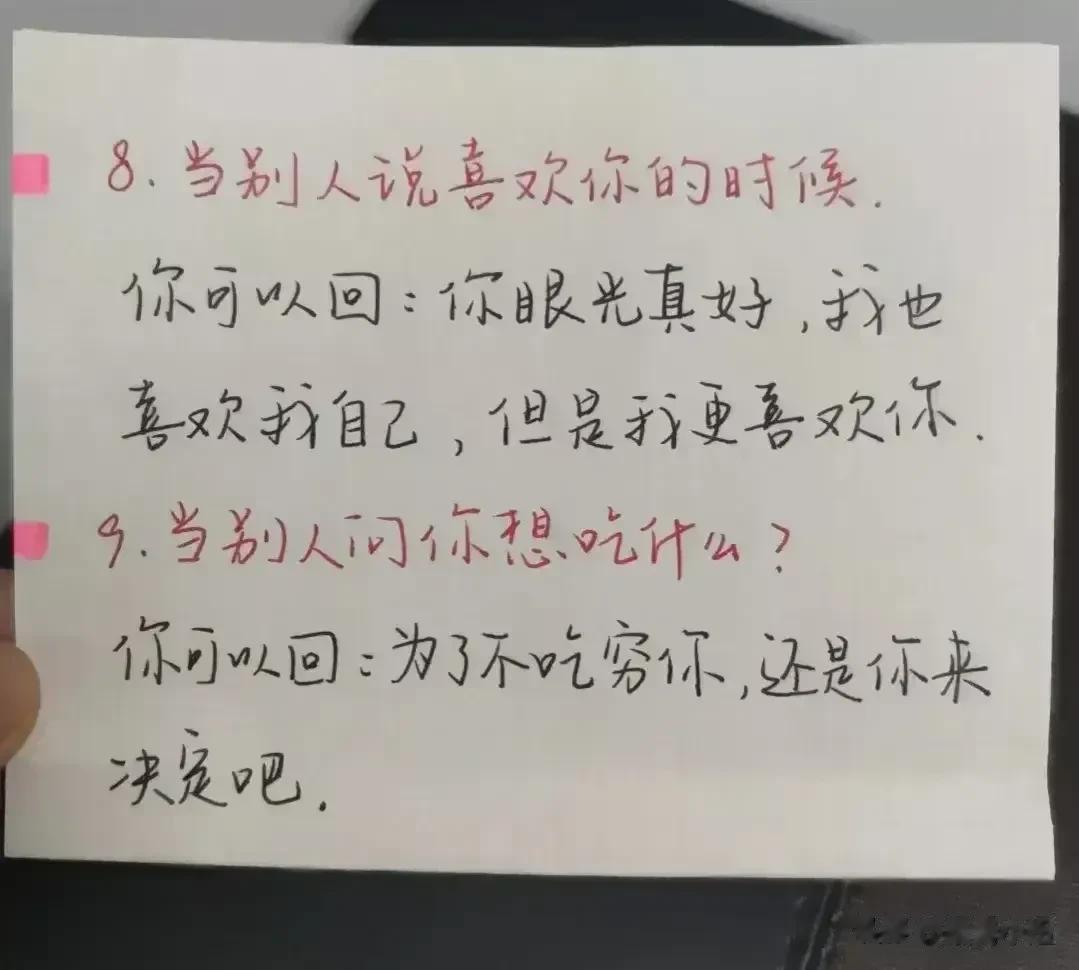 8.当别人说喜欢你的时候.
你可以回:你眼光真好,我也
喜欢我自己,但是我更喜欢你.
9.当别人问你想吃什么?
你可以回:为了不吃穷你,还是你来
决定吧.